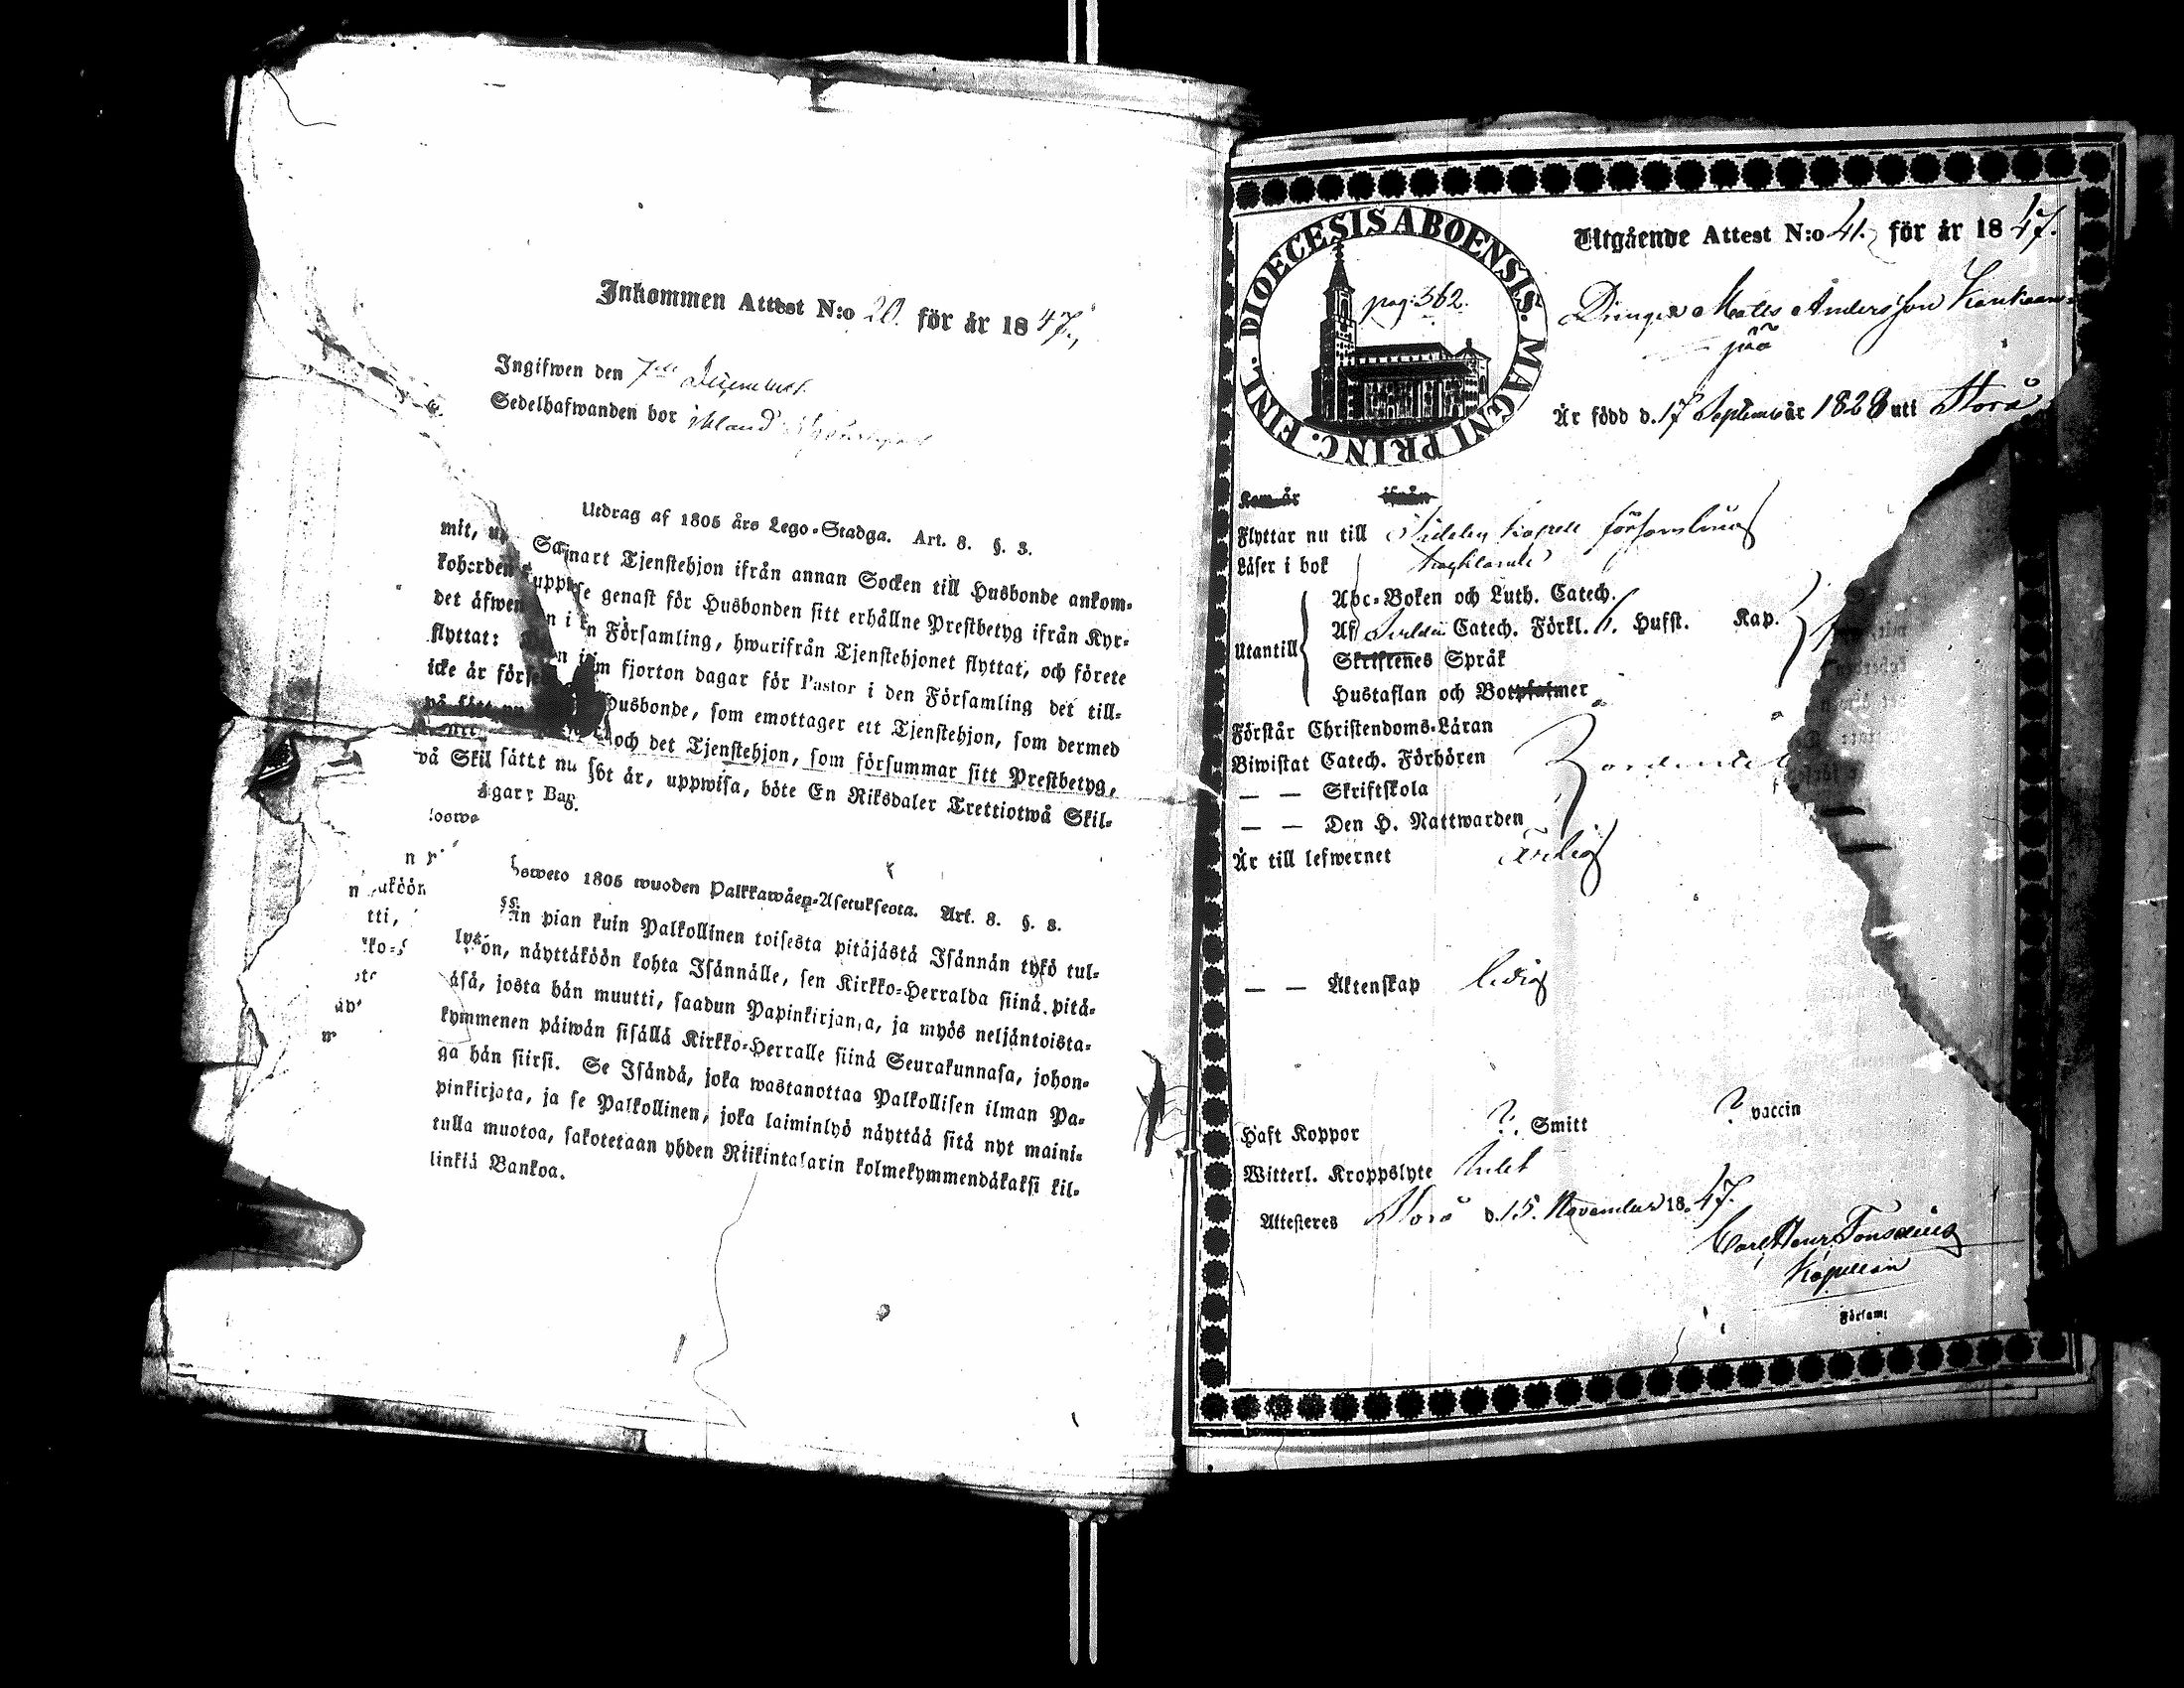 Inkommen Attest N:o 20. för år 1847.
Ingifwen den 7de December
Sedelhafwanden bor
Utdrag af 1805 års Lego-Stadga. Art. 8. §. 3.
Tjenstehjon ifrån annan Socken till Husbonde ankom-
mit, genast för Husbonden sitt erhållne Prestbetyg ifrån Kyr-
koherden i Församling, hwarifrån Tjenstehjonet flyttat, och förete
det äfwen fjorton dagar för Pastor i den Församling det till-
flyttat: Husbonde, som emottager ett Tjenstehjon, som dermed
icke är och det Tjenstehjon, som försummar sitt Prestbetyg,
på Sätt nu uppwisa, böte En Riksdaler Trettiotwå Skil-
1805 wuoden Palkkawäen-Asetuksesta. Art. 8. §. 3.
pian kuin Palkollinen toisesta pitäjästä Isännän tykö tul-
näyttäköön kohta Isännälle, sen Kirkko-Herralda siinä pitä-
josta hän muutti, saadun Papinkirjan,a, ja myös neljäntoista-
kymmenen päiwän sisällä Kirkko-Herralle siinä Seurakunnasa, johon-
ga hän siirsi. Se Isändä, joka wastanottaa Palkollisen ilman Pa-
pinkirjata, ja se Palkollinen, joka laiminlyö näyttää sitä nyt maini-
tulla muotoa, sakotetaan yhden Riikintalarin kolmekymmendäkaksi kil-
linkiä Bankoa.
DIOECESIS ABOENSIS. MAGNI PRINC. FINL.
pag: 362.
Utgående Attest N:o 41. för år 1847.
Drängen Matts Andersson Kankaan-
pää
Är född d. 17 September år 1828 uti Storå
Kom år ifrån
Flyttar nu till Sideby Kapell församling
Läser i bok
Utantill
Abc-Boken och Luth. Catech.
Af Catech. Förkl. Hufst. Kap.
Skriftenes Språk
Hustaflan och Botpsalmer
Förstår Christendoms-Läran
Biwistat Catech. Förhören
— — Skriftskola
— — Den H. Nattwarden
Är till lefwernet Ärlig
— — Äktenskap ledig
Haft Koppor ?. Smitt ? vaccin
Witterl. Kroppslyte Intet
Attesteres Storå d. 15. November 1847.
Carl Henr
Kapellan
Församl